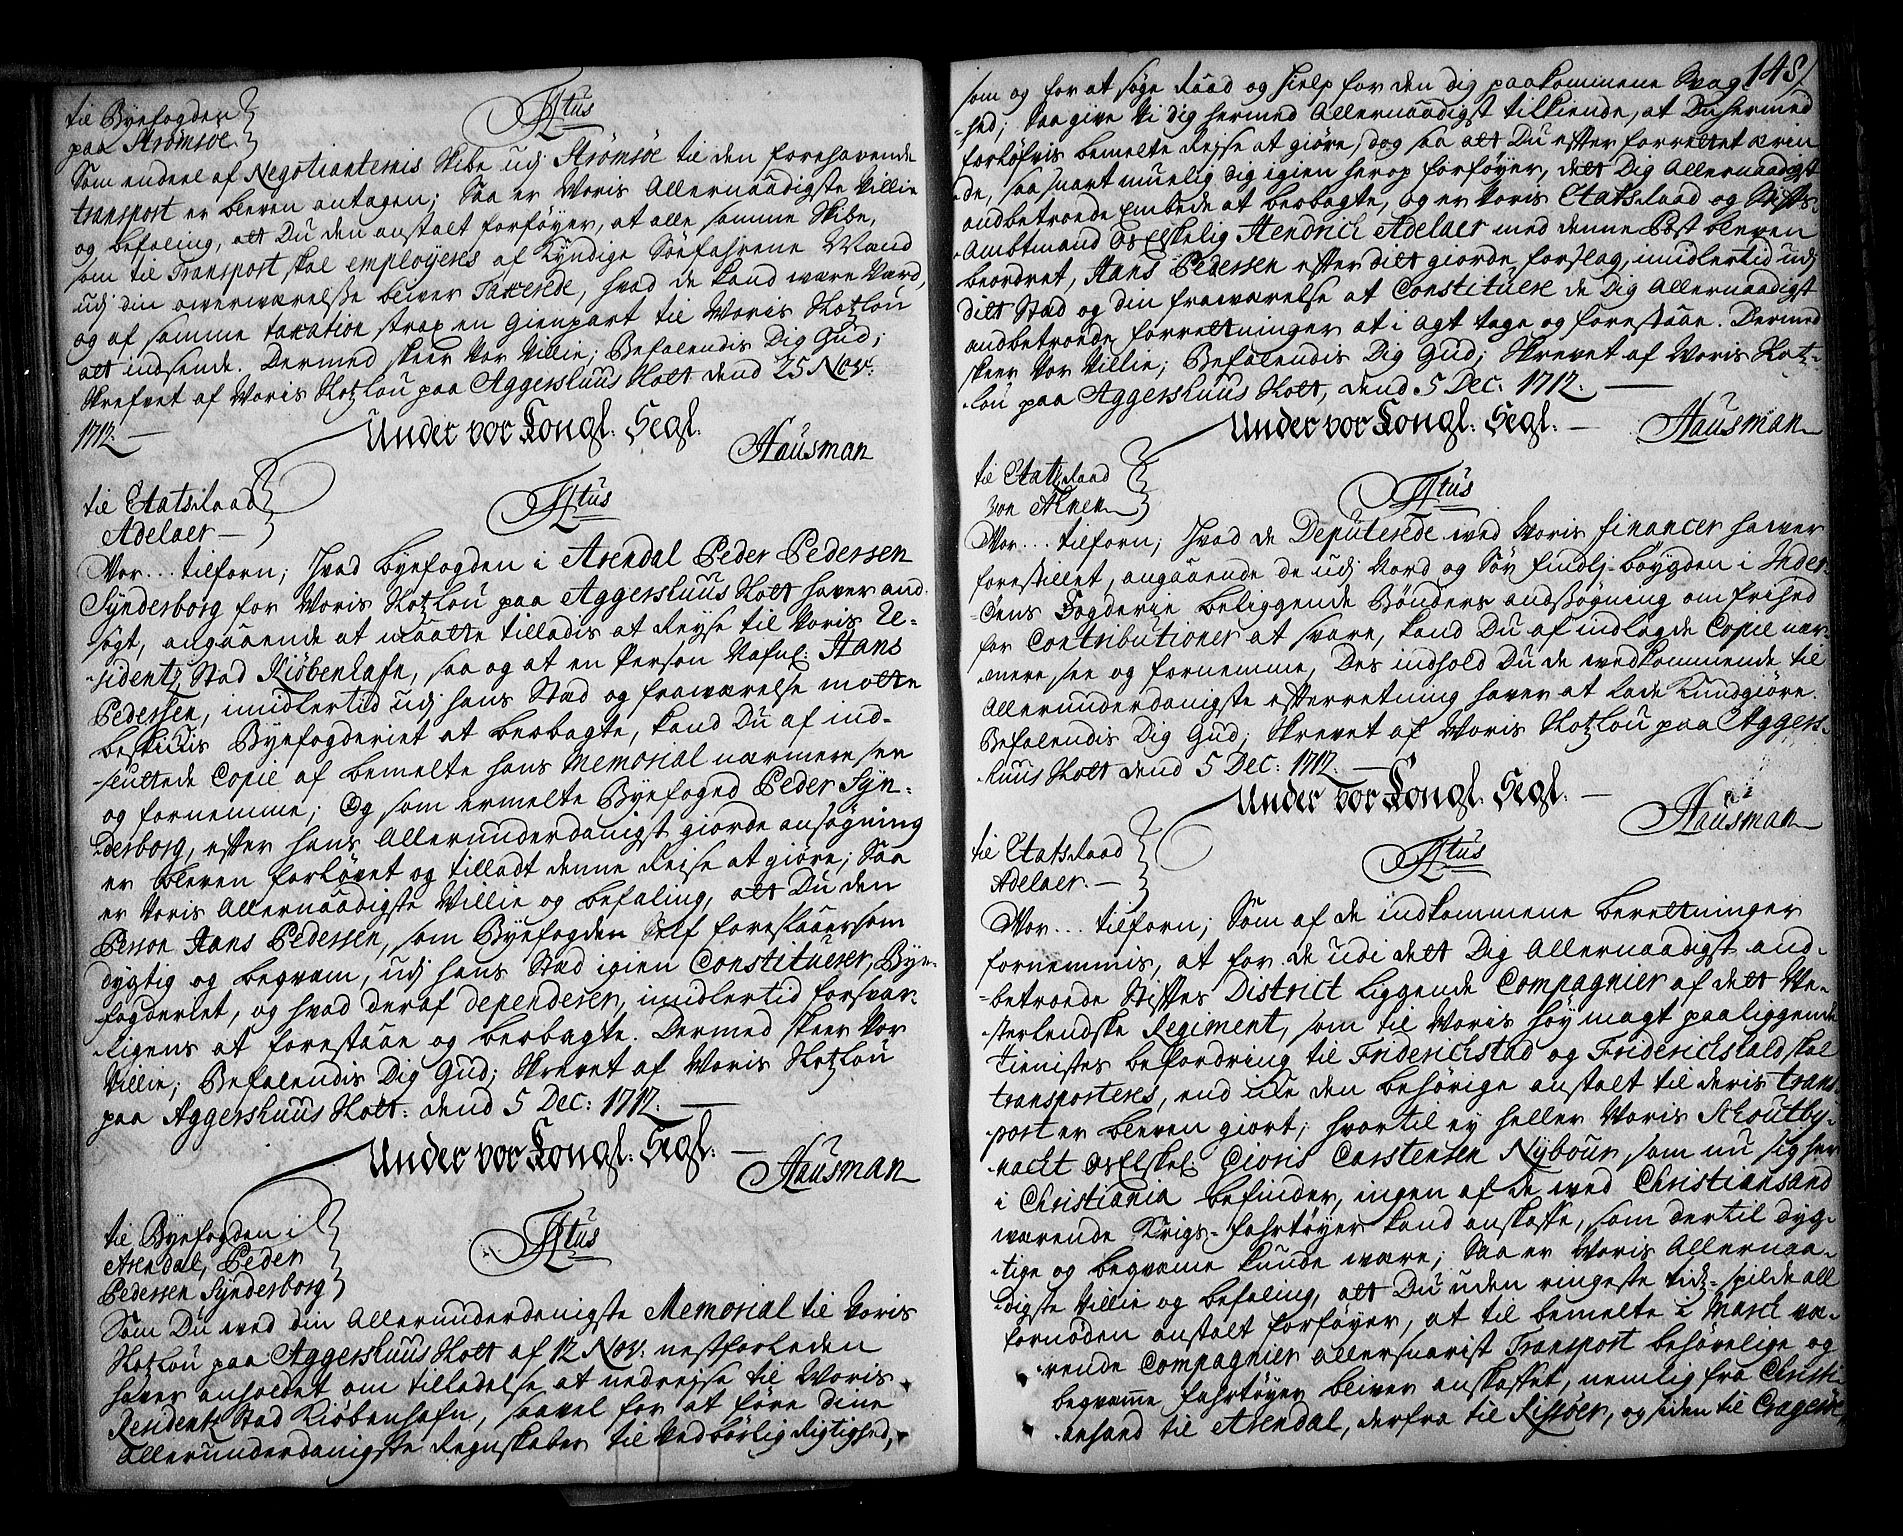 til Byefogden
paa Strømsøe.
F4tus
Som endeel af Negotianternis Skibe udj Strømsøe til den forehavende
transport er bleven antagen; Saa er Voris Allernaadigste Villie
og befaling, att Du den anstalt forføyer, at alle samme Skibe,
som til Transport skal employeres af kyndige Søefahrene Mænd
udj din overværelse bliver Taxerede, hvad de kand være værd,
og af samme taxation strax en Gienpart til Voris Slotzlou
att indsende. Dermed skeer Vor Villie; Befalendis Dig Gud;
Skrefvet af Voris Slotzlou paa Aggershuus Slott dend 25 Nov:
1712. —
Under vor Kongl: Segl.
Hausman
til Etatsraad
Adelaer —
F4tus
Vor... tilforn; Hvad byefogden i Arendal Peder Pedersen
Synderborg for Voris Slotzlou paa Aggershuus Slott haver and-
søgt, angaaende at maatte tilladis at Reyse til Voris Re-
sidentz Stad Kiøbenhafn, saa og at en Person Nafnl: Hans
Pedersen, imidlertid udj hans Sted og fraværelse motte
beskikkis Byefogderiet at beobagte, kand Du af ind-
sluttede Copie af bemelte hans Memorial nærmere see
og fornemme; Og som ermelte Byefoged Peder Syn-
derborg, efter hans Allerunderdanigst giorde ansøgning
er bleven forløvet og tilladt denne Reise at giøre; Saa
er Voris Allernaadigste Villie og befaling, att Du den
Person Hans Pedersen, som Byefogden Self foreslaaer som
dygtig og beqvam, udj hans Sted igien Constituerer, Bye-
fogderiet, og hvad deraf dependerer, imidlertid forsvar-
ligens at forestaae og beobagte. Dermed skeer Vor
Villie; Befalendis Dig Gud; Skrevet af Voris Slotzlou
paa Aggershuus Slott: dend 5 Dec: 1712. —
Under vor Kongl: Segl. —
Hausman
til Byefogden i
Arendal, Peder
Pedersen Synderborg
F4tus
Som Du ved din Allerunderdanigste Memorial til Voris
Slotzlou paa Aggershuus Slott af 12 Nov: nestforleden
haver anholdet om tilladelse at nedrejse til Voris
Residentz Stad Kiøbenhafn, saavel for at føre dine
Allerunderdanigste Regnskaber til Vedbørlig Rigtighed,
148
som og for at søge Raad og Hielp for den dig paakommene Svag-
hed; Saa give Vi dig hermed Allernaadigst tilkiende, at Du hermed
forløfvis bemelte Rejse at giøre, dog saa att Du efter forrettet ærin-
de, saa snart muelig dig igien herop forføyer, dett Dig Allernaadigst
andbetroede Embede at beobagte, og er Voris Etatsraad og Stifts-
Ambtmand Os Elskelig Hendrich Adelaer med denne Post bleven
beordret, Hans Pedersen efter ditt giorde forslag, imidlertid udj
ditt Sted og din fraværelse at Constituere de Dig Allernaadigst
andbetroede forrettninger at i Agt tage og forestaae. Dermed
skeer Vor Villie; Befalendis Dig Gud; Skrevet af Voris Slotz-
lou paa Aggershuus Slott, dend 5 Dec: 1712. —
Under vor Kongl: Segl. —
Hausman
til Etatsraad
von Ahnen
F4tus
Vor... tilforn; Hvad de Deputerede ved Voris Financer haver
forestillet, angaaende de udj Nord og Søy Findlj-bøygden i Inder-
Øens Fogderie beliggende Bønders andsøgning om frihed
for Contributioner at svare, kand Du af indlagde Copie nær-
mere see og fornemme, Des indhold Du de vedkommende til
Allerunderdanigste efterretning haver at lade kundgiøre.
Befalendis Dig Gud; Skrevet af Voris Slotzlou paa Aggers-
huus Slott dend 5 Dec: 1712. —
Under vor Kongl: Segl. —
Hausman
til Etatsraad
Adelaer. —
F4tus
Vor... tilforn; Som af de indkommene berettninger
fornemmis, at for de udi dett Dig Allernaadigst and-
betroede Stiftes District liggende Compagnier af dett Ve-
sterlendske Regiment, som til Voris høy magt paaliggende
Tienistes befordring til Friderichstad og Friderichshald skal
transporteres, end icke den behørige anstalt til deris trans-
port er bleven giort, hvortil ey heller Voris Schoutby-
nacht Os Elskel: Gioris Carstensen Nybour som nu sig her
i Christiania befinder, ingen af de ved Christiansand
værende Krigs-fahrtøyer kand anskaffe, som dertil dyg-
tige og beqvame kunde være; Saa er Voris Allernaa-
digste Villie og befaling, att Du uden ringeste tids-spilde all
fornøden anstalt forføyer, at til bemelte i March væ-
rende Compagnier allersnarist Transport behøvelige og
beqvamme fahrtøyer bliver anskaffet, nemlig fra Christi-
ansand til Arendal, derfra til Risøer, og siden til Crageröe